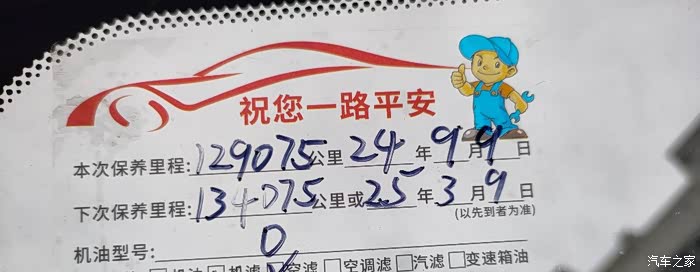 祝您一路平安
本次保养里程:129075公里24年9月9日
下次保养里程:134075公里或25年3月9日
(以先到者为准)
机油型号:0
机油 机滤 空滤 空调滤 汽滤 变速箱油
汽车之家